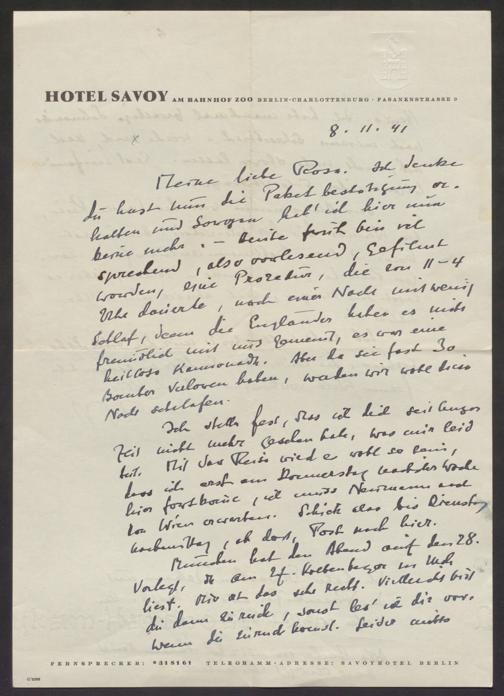 HOTEL SAVOY AM BAHNHOF ZOO BERLIN-CHARLOTTENBURG · FASANENSTRASSE 9
8. 11. 41
Meine liebe Ross. Ich denke
du hast nun die Paket bestätigung er-
halten und Sorgen hab' ich hier nun
keine mehr. — Heute früh bin ich
sprechend, also vorlesend, gefilmt
worden, eine Prozedur, die von 11-4
Uhr dauerte, nach einer Nacht mit wenig
Schlaf, denn die Engländer haben es nicht
freundlich mit uns gemeint, es war eine
heillose Kanonade. Aber da sie fast 30
Bomber verloren haben, werden wir wohl diese
Nacht schlafen.
Ich stelle fest, dass ich dich seit langer
Zeit nicht mehr gesehen habe, was mir leid
tut. Mit der Reise wird es wohl so sein,
dass ich erst am Donnerstag nächster Woche
hier fortkomme, ich muss Neumann und
von Wien erwarten. Schick also bis Dienstag
nachmittag, ab dort, Post nach hier.
München hat den Abend auf den 28.
verlegt, da am 27. Kolbenheyer in Mch
liest. Mir ist das sehr recht. Vielleicht bist
du dann zurück, sonst les' ich dir vor,
wenn du zurück kommst. Leider
FERNSPRECHER: *318161 TELEGRAMM-ADRESSE: SAVOYHOTEL BERLIN